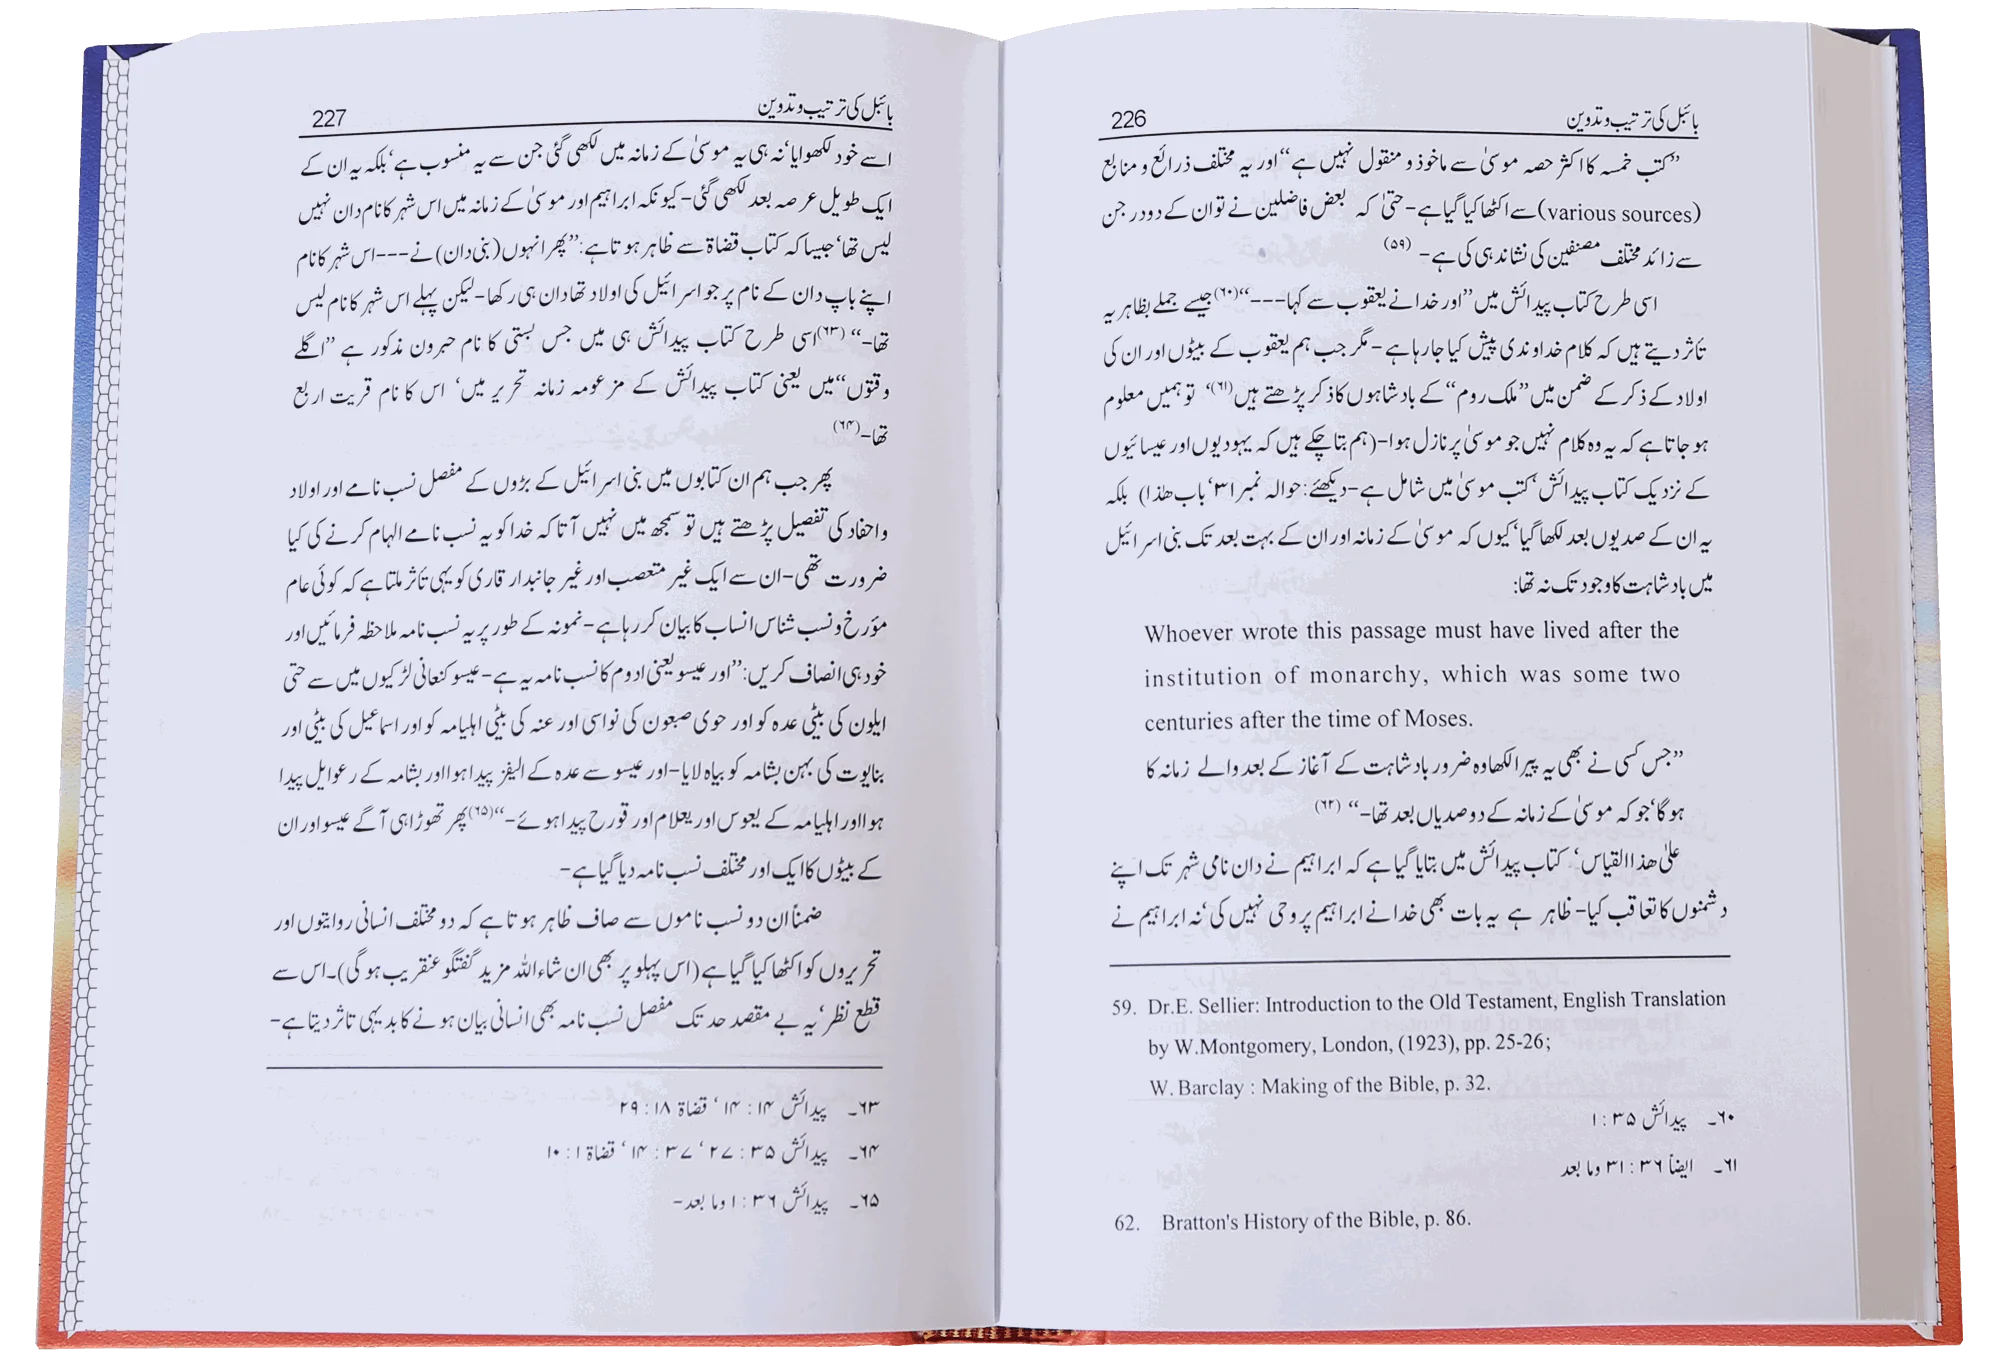 بائبل کی ترتیب و تدوین 226
”کتب خمسہ کا اکثر حصہ موسیٰ سے ماخوذ و منقول نہیں ہے“ اور یہ مختلف ذرائع و منابع
(various sources) سے اکٹھا کیا گیا ہے- حتیٰ کہ بعض فاضلین نے تو ان کے دو درجن
سے زائد مختلف مصنفین کی نشاندہی کی ہے- (۵۹)
اسی طرح کتاب پیدائش میں ”اور خدا نے یعقوب سے کہا---“(۶۰) جیسے جملے بظاہر یہ
تأثر دیتے ہیں کہ کلام خداوندی پیش کیا جا رہا ہے- مگر جب ہم یعقوب کے بیٹوں اور ان کی
اولاد کے ذکر کے ضمن میں ”ملک روم“ کے بادشاہوں کا ذکر پڑھتے ہیں(۶۱)‘ تو ہمیں معلوم
ہو جاتا ہے کہ یہ وہ کلام نہیں جو موسیٰ پر نازل ہوا- (ہم بتا چکے ہیں کہ یہودیوں اور عیسائیوں
کے نزدیک کتاب پیدائش‘ کتب موسیٰ میں شامل ہے- دیکھئے: حوالہ نمبر ۳۱‘ باب ھٰذا) بلکہ
یہ ان کے صدیوں بعد لکھا گیا‘ کیوں کہ موسیٰ کے زمانہ اور ان کے بہت بعد تک بنی اسرائیل
میں بادشاہت کا وجود تک نہ تھا:
Whoever wrote this passage must have lived after the
institution of monarchy, which was some two
centuries after the time of Moses.
”جس کسی نے بھی یہ پیرا لکھا وہ ضرور بادشاہت کے آغاز کے بعد والے زمانہ کا
ہو گا‘ جو کہ موسیٰ کے زمانہ کے دو صدیاں بعد تھا-“ (۶۲)
علیٰ ھذا القیاس‘ کتاب پیدائش میں بتایا گیا ہے کہ ابراہیم نے دان نامی شہر تک اپنے
دشمنوں کا تعاقب کیا- ظاہر ہے یہ بات بھی خدا نے ابراہیم پر وحی نہیں کی‘ نہ ابراہیم نے
59. Dr.E. Sellier: Introduction to the Old Testament, English Translation
by W.Montgomery, London, (1923), pp. 25-26;
W. Barclay : Making of the Bible, p. 32.
۶۰۔ پیدائش ۳۵ : ۱
۶۱۔ ایضاً ۳۶ : ۳۱ وما بعد
62. Bratton's History of the Bible, p. 86.
بائبل کی ترتیب و تدوین 227
اسے خود لکھوایا‘ نہ ہی یہ موسیٰ کے زمانہ میں لکھی گئی جن سے یہ منسوب ہے‘ بلکہ یہ ان کے
ایک طویل عرصہ بعد لکھی گئی- کیونکہ ابراہیم اور موسیٰ کے زمانہ میں اس شہر کا نام دان نہیں
لیس تھا‘ جیسا کہ کتاب قضاۃ سے ظاہر ہوتا ہے: ”پھر انہوں (بنی دان) نے --- اس شہر کا نام
اپنے باپ دان کے نام پر جو اسرائیل کی اولاد تھا دان ہی رکھا- لیکن پہلے اس شہر کا نام لیس
تھا-“ (۶۳) اسی طرح کتاب پیدائش ہی میں جس بستی کا نام حبرون مذکور ہے ”اگلے
وقتوں“ میں یعنی کتاب پیدائش کے مزعومہ زمانہ تحریر میں‘ اس کا نام قریت اربع
تھا-(۶۴)
پھر جب ہم ان کتابوں میں بنی اسرائیل کے بڑوں کے مفصل نسب نامے اور اولاد
و احفاد کی تفصیل پڑھتے ہیں تو سمجھ میں نہیں آتا کہ خدا کو یہ نسب نامے الہام کرنے کی کیا
ضرورت تھی- ان سے ایک غیر متعصب اور غیر جانبدار قاری کو یہی تأثر ملتا ہے کہ کوئی عام
مؤرخ و نسب شناس انساب کا بیان کر رہا ہے- نمونہ کے طور پر یہ نسب نامہ ملاحظہ فرمائیں اور
خود ہی انصاف کریں: ”اور عیسو یعنی ادوم کا نسب نامہ یہ ہے- عیسو کنعانی لڑکیوں میں سے حتی
ایلون کی بیٹی عدہ کو اور حوی صبعون کی نواسی اور عنہ کی بیٹی اہلیامہ کو اور اسماعیل کی بیٹی اور
بنایوت کی بہن بشامہ کو بیاہ لایا- اور عیسو سے عدہ کے الیفز پیدا ہوا اور بشامہ کے رعوایل پیدا
ہوا اور اہلیامہ کے یعوس اور یعلام اور قورح پیدا ہوئے-“(۶۵) پھر تھوڑا ہی آگے عیسو اور ان
کے بیٹوں کا ایک اور مختلف نسب نامہ دیا گیا ہے-
ضمناً ان دو نسب ناموں سے صاف ظاہر ہوتا ہے کہ دو مختلف انسانی روایتوں اور
تحریروں کو اکٹھا کیا گیا ہے (اس پہلو پر بھی ان شاء اللہ مزید گفتگو عنقریب ہو گی)۔ اس سے
قطع نظر‘ یہ بے مقصد حد تک مفصل نسب نامہ بھی انسانی بیان ہونے کا بدیہی تاثر دیتا ہے-
۶۳۔ پیدائش ۱۴ : ۱۴‘ قضاۃ ۱۸ : ۲۹
۶۴۔ پیدائش ۳۵ : ۲۷‘ ۳۷ : ۱۴‘ قضاۃ ۱ : ۱۰
۶۵۔ پیدائش ۳۶ : ۱ وما بعد-